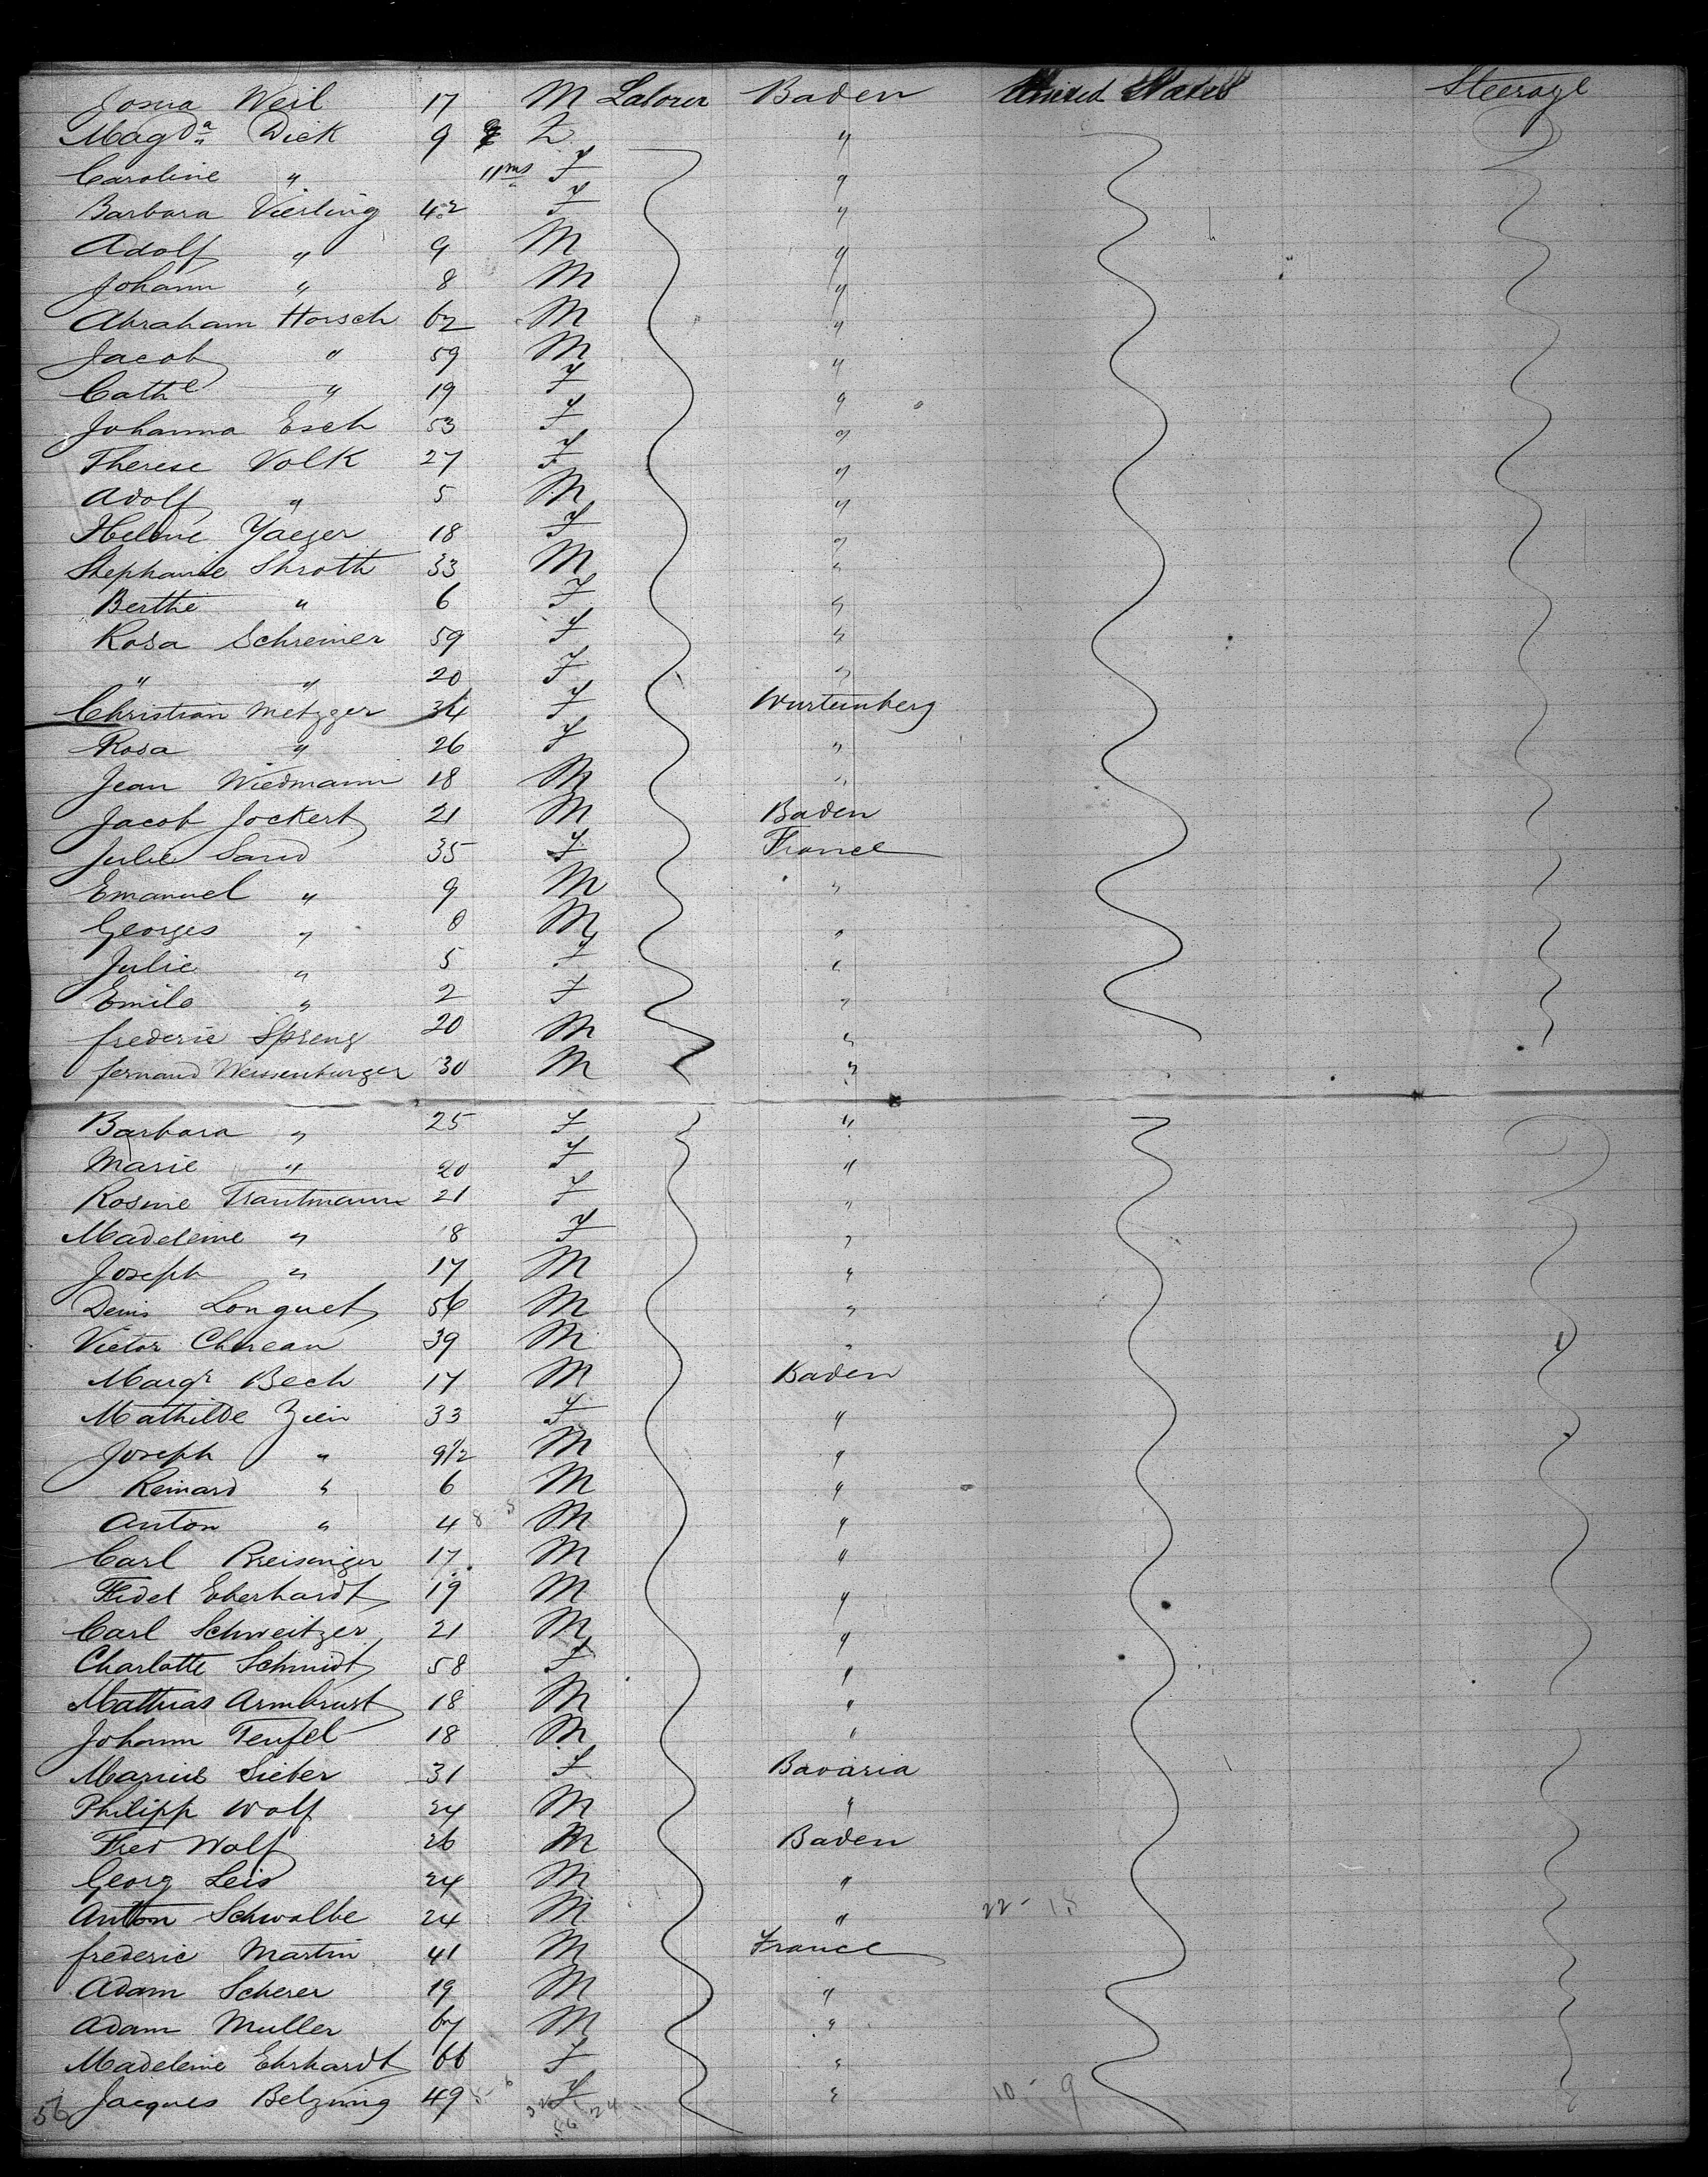 Josua Weil 17 M Laborer Baden United States Steerage
Magda Dick 9 "
Caroline " 11ms F "
Barbara Vierling 42 F "
Adolf " 9 M "
Johann " 8 M "
Abraham Horsch 62 M "
Jacob " 59 M "
Cathe " 19 F "
Johanna Esch 53 F "
Therese Volk 27 F "
Adolf " 5 M "
Helene Yaeger 18 F "
Stephanie Shroth 33 M "
Berthe " 6 F "
Rosa Schreiner 59 F "
" " 20 F "
Christian Metzger 34 F Wurtemberg
Rosa " 26 F "
Jean Wiedmann 18 M "
Jacob Jockert 21 M Baden
Julie Sand 35 F France
Emanuel " 9 M "
Georges " 8 M "
Julie " 5 F "
Emile " 2 F "
frederic Spreng 20 M "
fernand Weissenburger 30 M "
Barbara " 25 F "
Marie " 20 F "
Rosine Trautmann 21 F "
Madeleine " 18 F "
Joseph " 17 M "
Denis Longuet 56 M "
Victor 39 M "
Margr Bech 17 M Baden
Mathilde Zien 33 F "
Joseph " 9 1/2 M "
Reinard " 6 M "
Anton " 4 M "
Carl Preisinger 17 M "
Fidel Eberhardt 19 M "
Carl Schweitzer 21 M "
Charlotte Schmidt 58 F "
Mathias Armbrust 18 M "
Johann Teufel 18 M "
Sieber 31 F Bavaria
Philipp Wolf 24 M "
Fred Wolf 26 M Baden
Georg Leis 24 M "
Anton Schwalbe 24 M "
frederic Martin 41 M France
Adam Scherer 19 M "
Adam Muller 67 M "
Madeleine Ehrhardt 66 F "
56 Jacques Belzung 49 F " 10 - 9